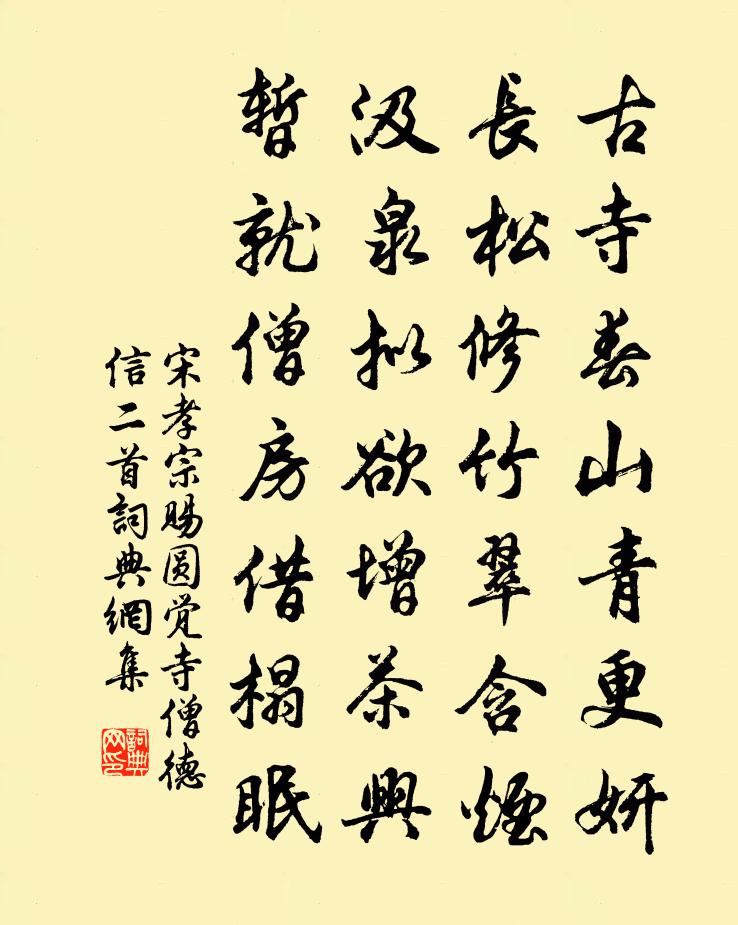 古寺春山青更妍
長松修竹翠含煙
汲泉拟欲增茶興
暫就僧房借榻眠
宋孝宗賜圆觉寺僧德
信二首詞典網集
詞典
网印